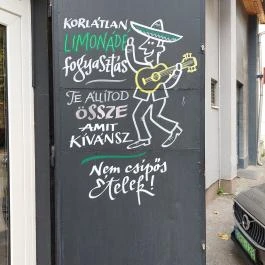 KORLÁTLAN
LIMONÁDÉ
fogyasztás
TE ÁLLÍTOD
ÖSSZE
AMIT
KÍVÁNSZ
Nem csípős
ételek!